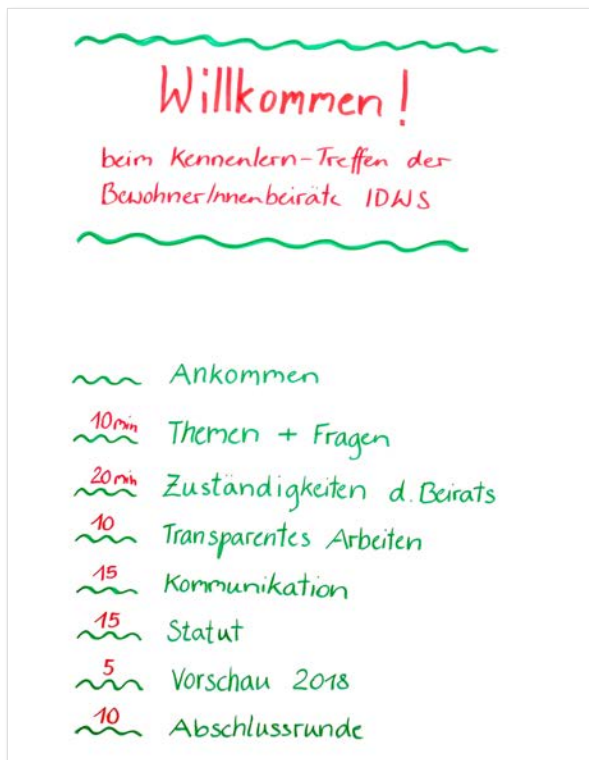 Willkommen!
beim Kennenlern-Treffen der
BewohnerInnenbeiräte IDWS
Ankommen
10min Themen + Fragen
20min Zuständigkeiten d. Beirats
10 Transparentes Arbeiten
15 Kommunikation
15 Statut
5 Vorschau 2018
10 Abschlussrunde